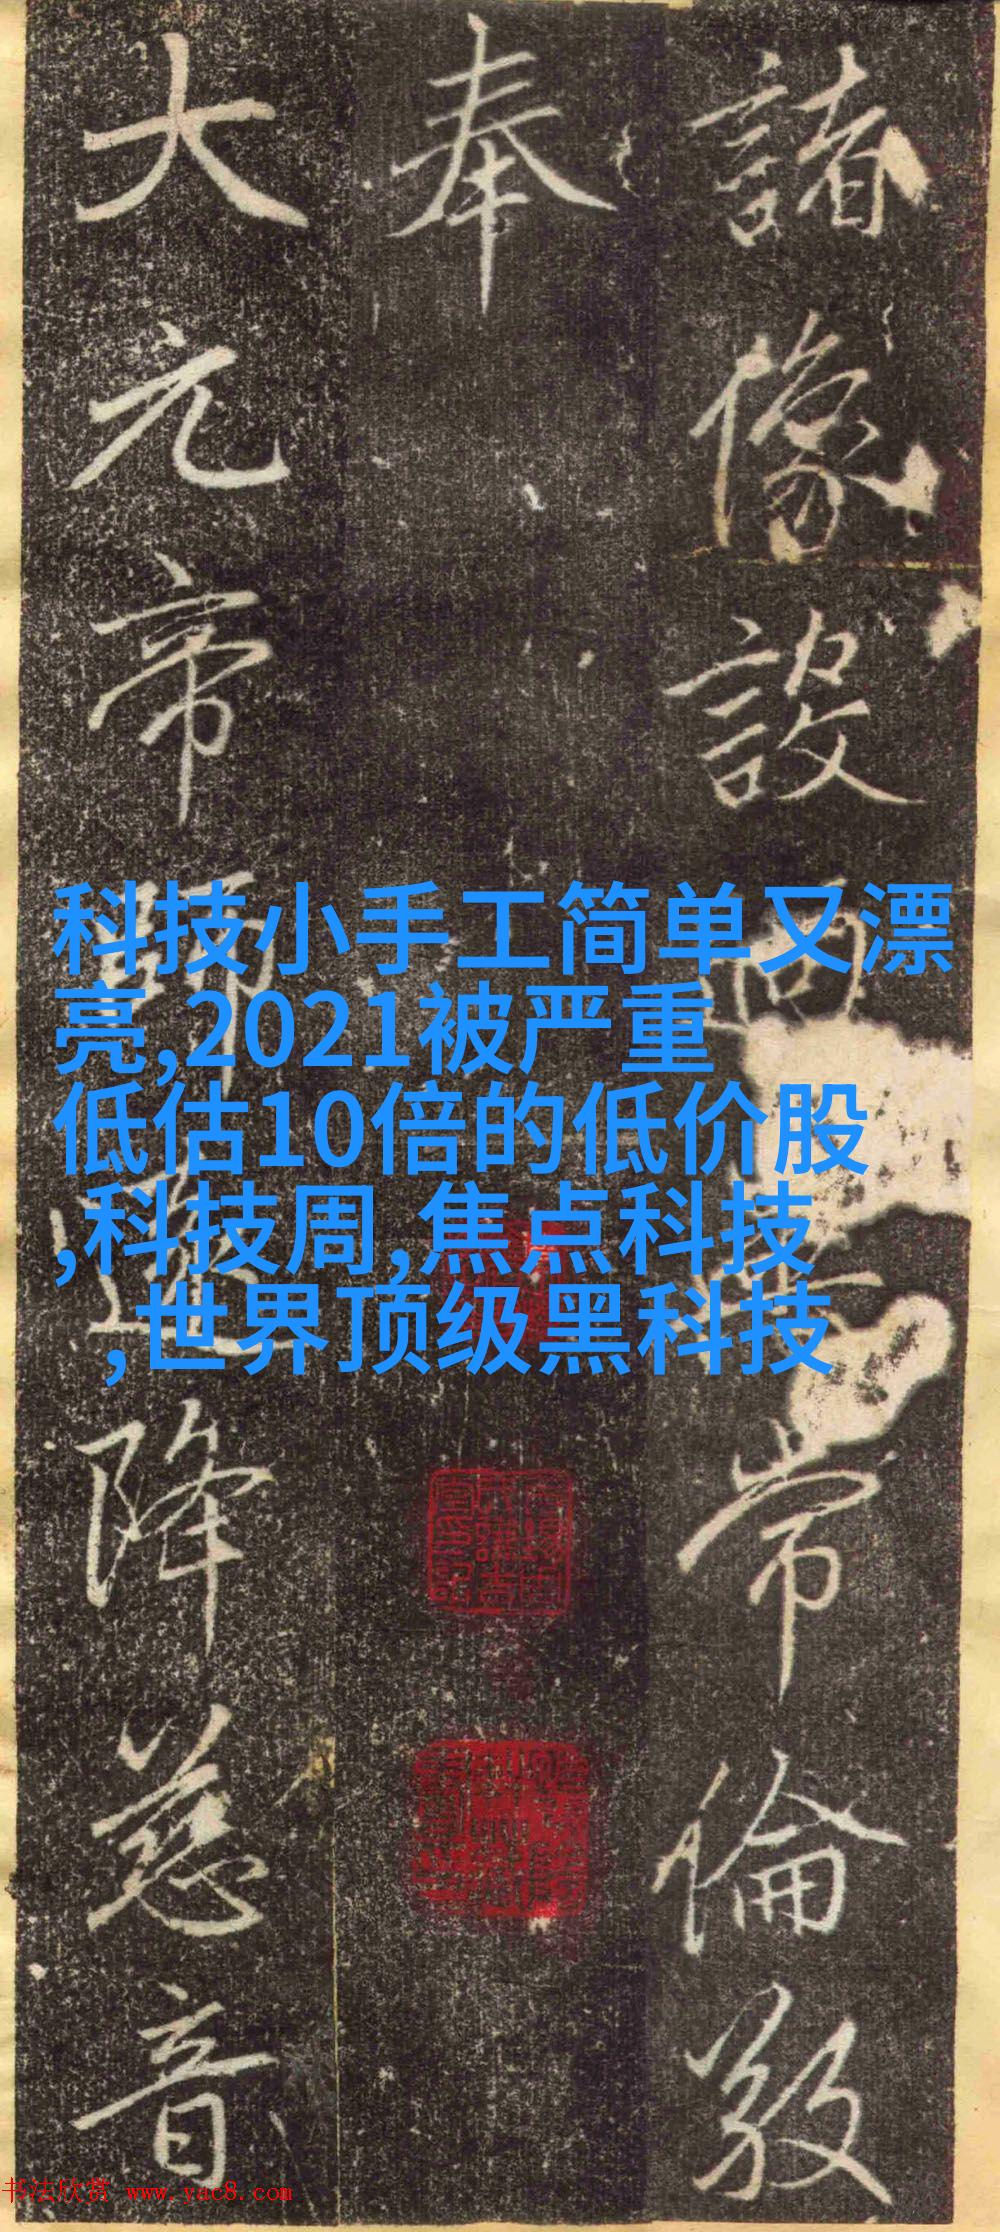 諸像設
常倫教
奉
大元帝師
降慈音
科技小手工简单又漂
亮,2021被严重
低估10倍的低价股
,科技周,焦点科技
,世界顶级黑科技
书法欣赏 www.yac8.com